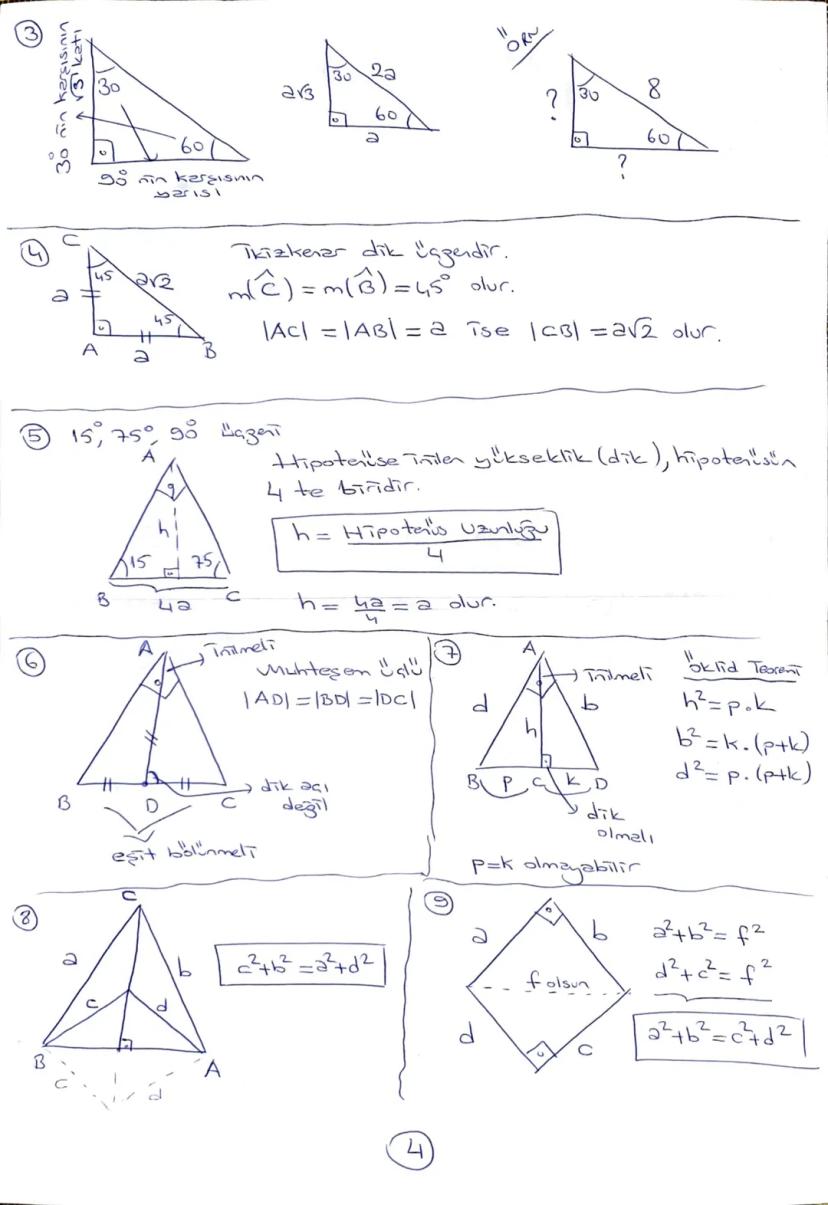 ③
30 nin karşısının
√3 katı
30
60
90 nin karşısının
yarısı
30
2a
a√3
60
a
ÖRN
?
30
8
60
?
④
C
45
a√2
a
45
A
a
B
İkizkenar dik üçgendir.
m(Ĉ) = m(B̂) = 45° olur.
|AC| = |AB| = a ise |CB| = a√2 olur.
⑤ 15°, 75°, 90° üçgeni
A
h
15
75
B
4a
C
Hipotenüse inilen yükseklik (dik), hipotenüsün
4 te biridir.
h = Hipotenüs Uzunluğu / 4
h = 4a/4 = a olur.
⑥
A
inilmeli
Muhteşem üçlü
|AD| = |BD| = |DC|
B
D
C
dik açı
değil
eşit bölünmeli
⑦
A
inilmeli
d
b
h
B
p
C
k
D
dik
olmalı
p=k olmayabilir
Öklid Teoremi
h² = p.k
b² = k.(p+k)
d² = p.(p+k)
⑧
C
a
b
c
d
B
A
c
d
c²+b² = a²+d²
⑨
a
b
f olsun
d
c
a²+b² = f²
d²+c² = f²
a²+b² = c²+d²
4